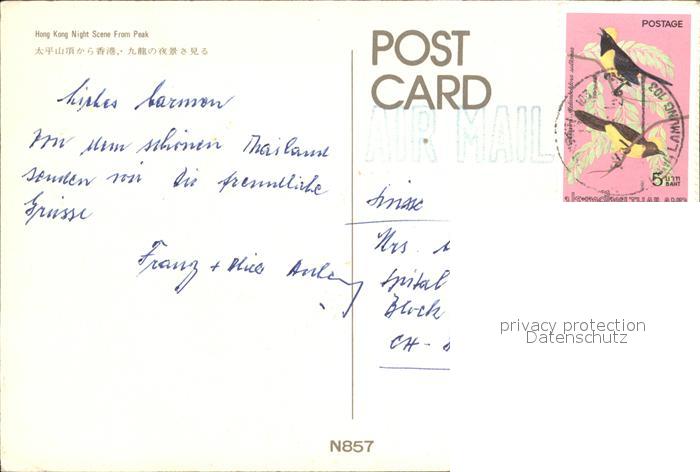 Hong Kong Night Scene From Peak
太平山頂から香港,・九龍の夜景を見る
POST
CARD
POSTAGE
AIR MAIL
5 บาท
BAHT
Liebes Carmen
Von dem schönen Thailand
senden wir die freundliche
Grüsse
Franz +
Suisse
Mrs.
Spital
Block
CH -
N857
privacy protection
Datenschutz